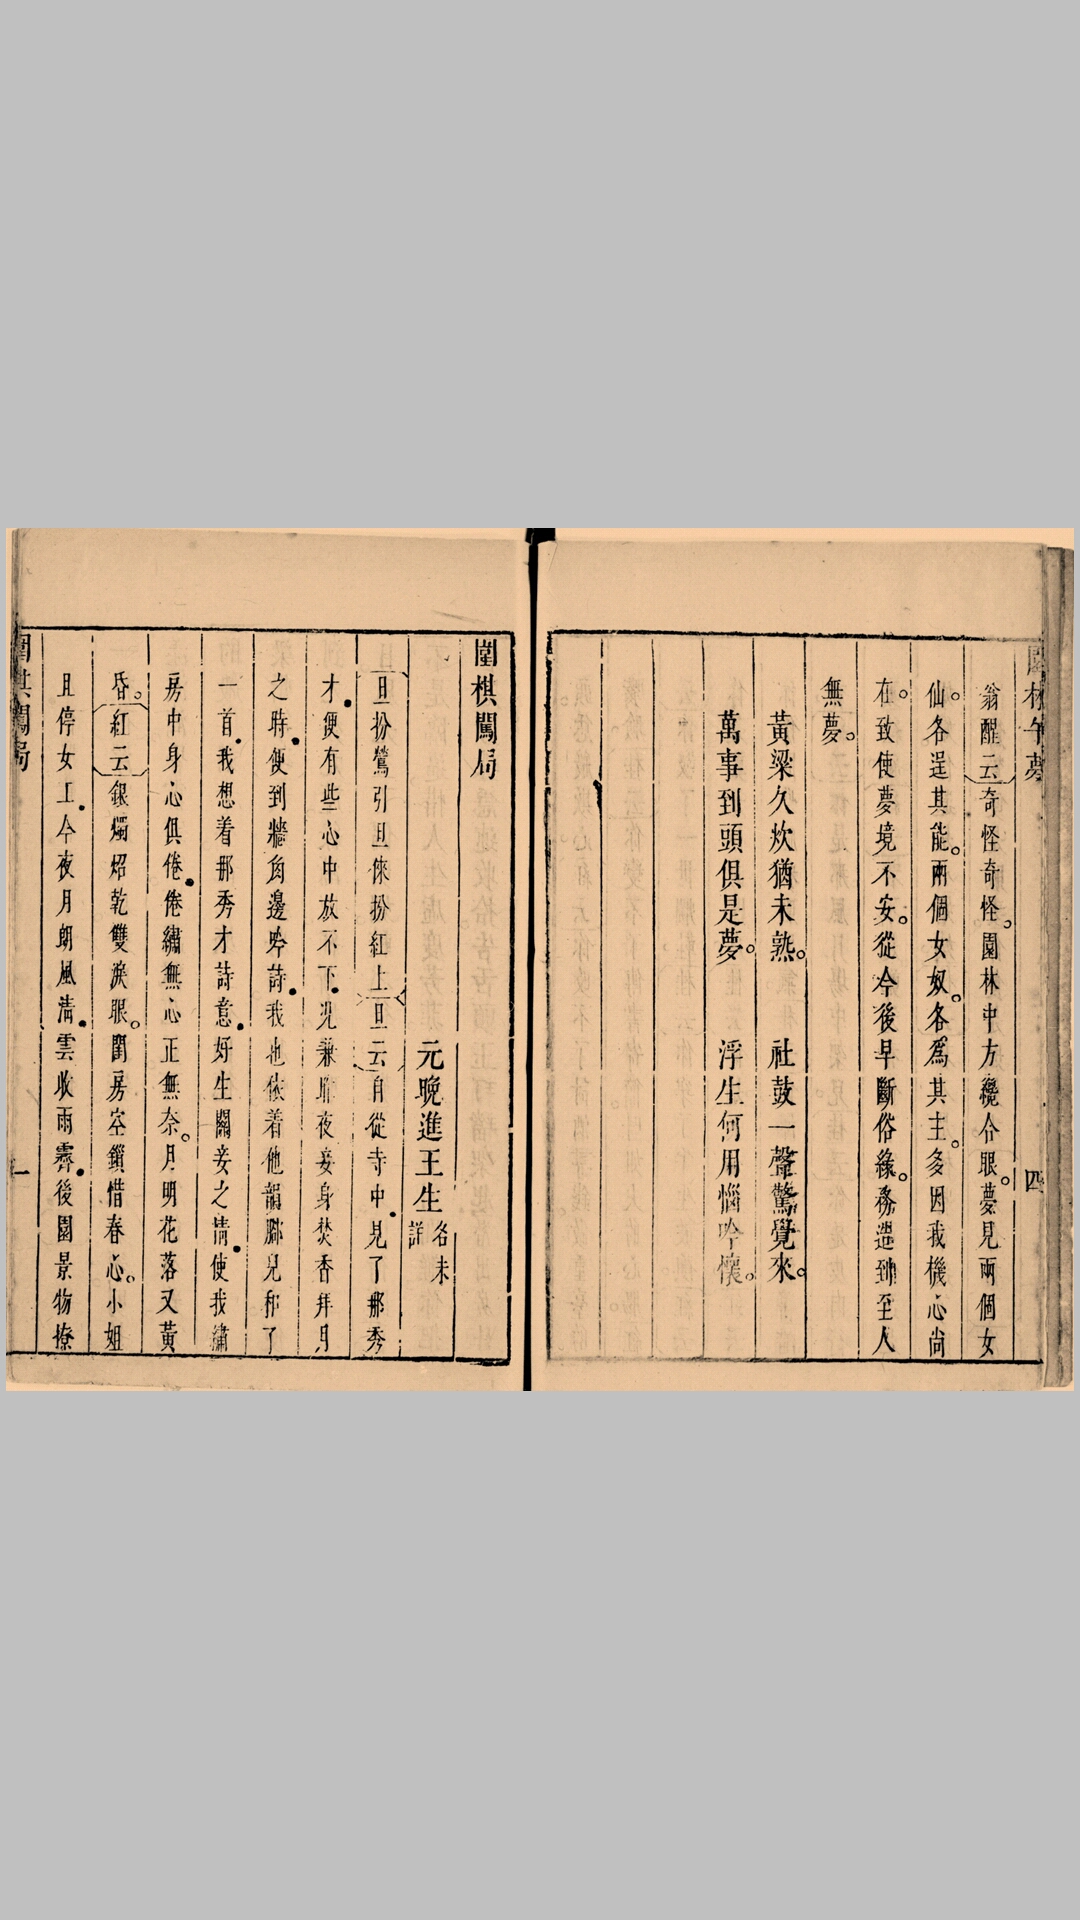 園林午夢
四
翁醒云奇怪奇怪。園林中方纔合眼。夢見兩個女
仙。各逞其能。兩個女奴。各爲其主。多因我機心尚
在。致使夢境不安。從今後早斷俗緣。務造到至人
無夢。
黃梁久炊猶未熟。 社鼓一聲驚覺來。
萬事到頭俱是夢。 浮生何用惱吟懷。
圍棋闖局
元晚進王生 名未詳
旦扮鶯引旦俫扮紅上旦云自從寺中見了那秀
才便有些心中放不下況兼昨夜妾身焚香拜月
之時便到牆角邊吟詩我也依着他韻腳兒和了
一首我想着那秀才詩意好生關妾之情使我繡
房中身心俱倦倦繡無心正無奈。月明花落又黃
昏。紅云銀燭炤乾雙淚眼。閨房空鎖惜春心。小姐
且停女工今夜月朗風清雲收雨霽後園景物撩
圍棋闖局
一